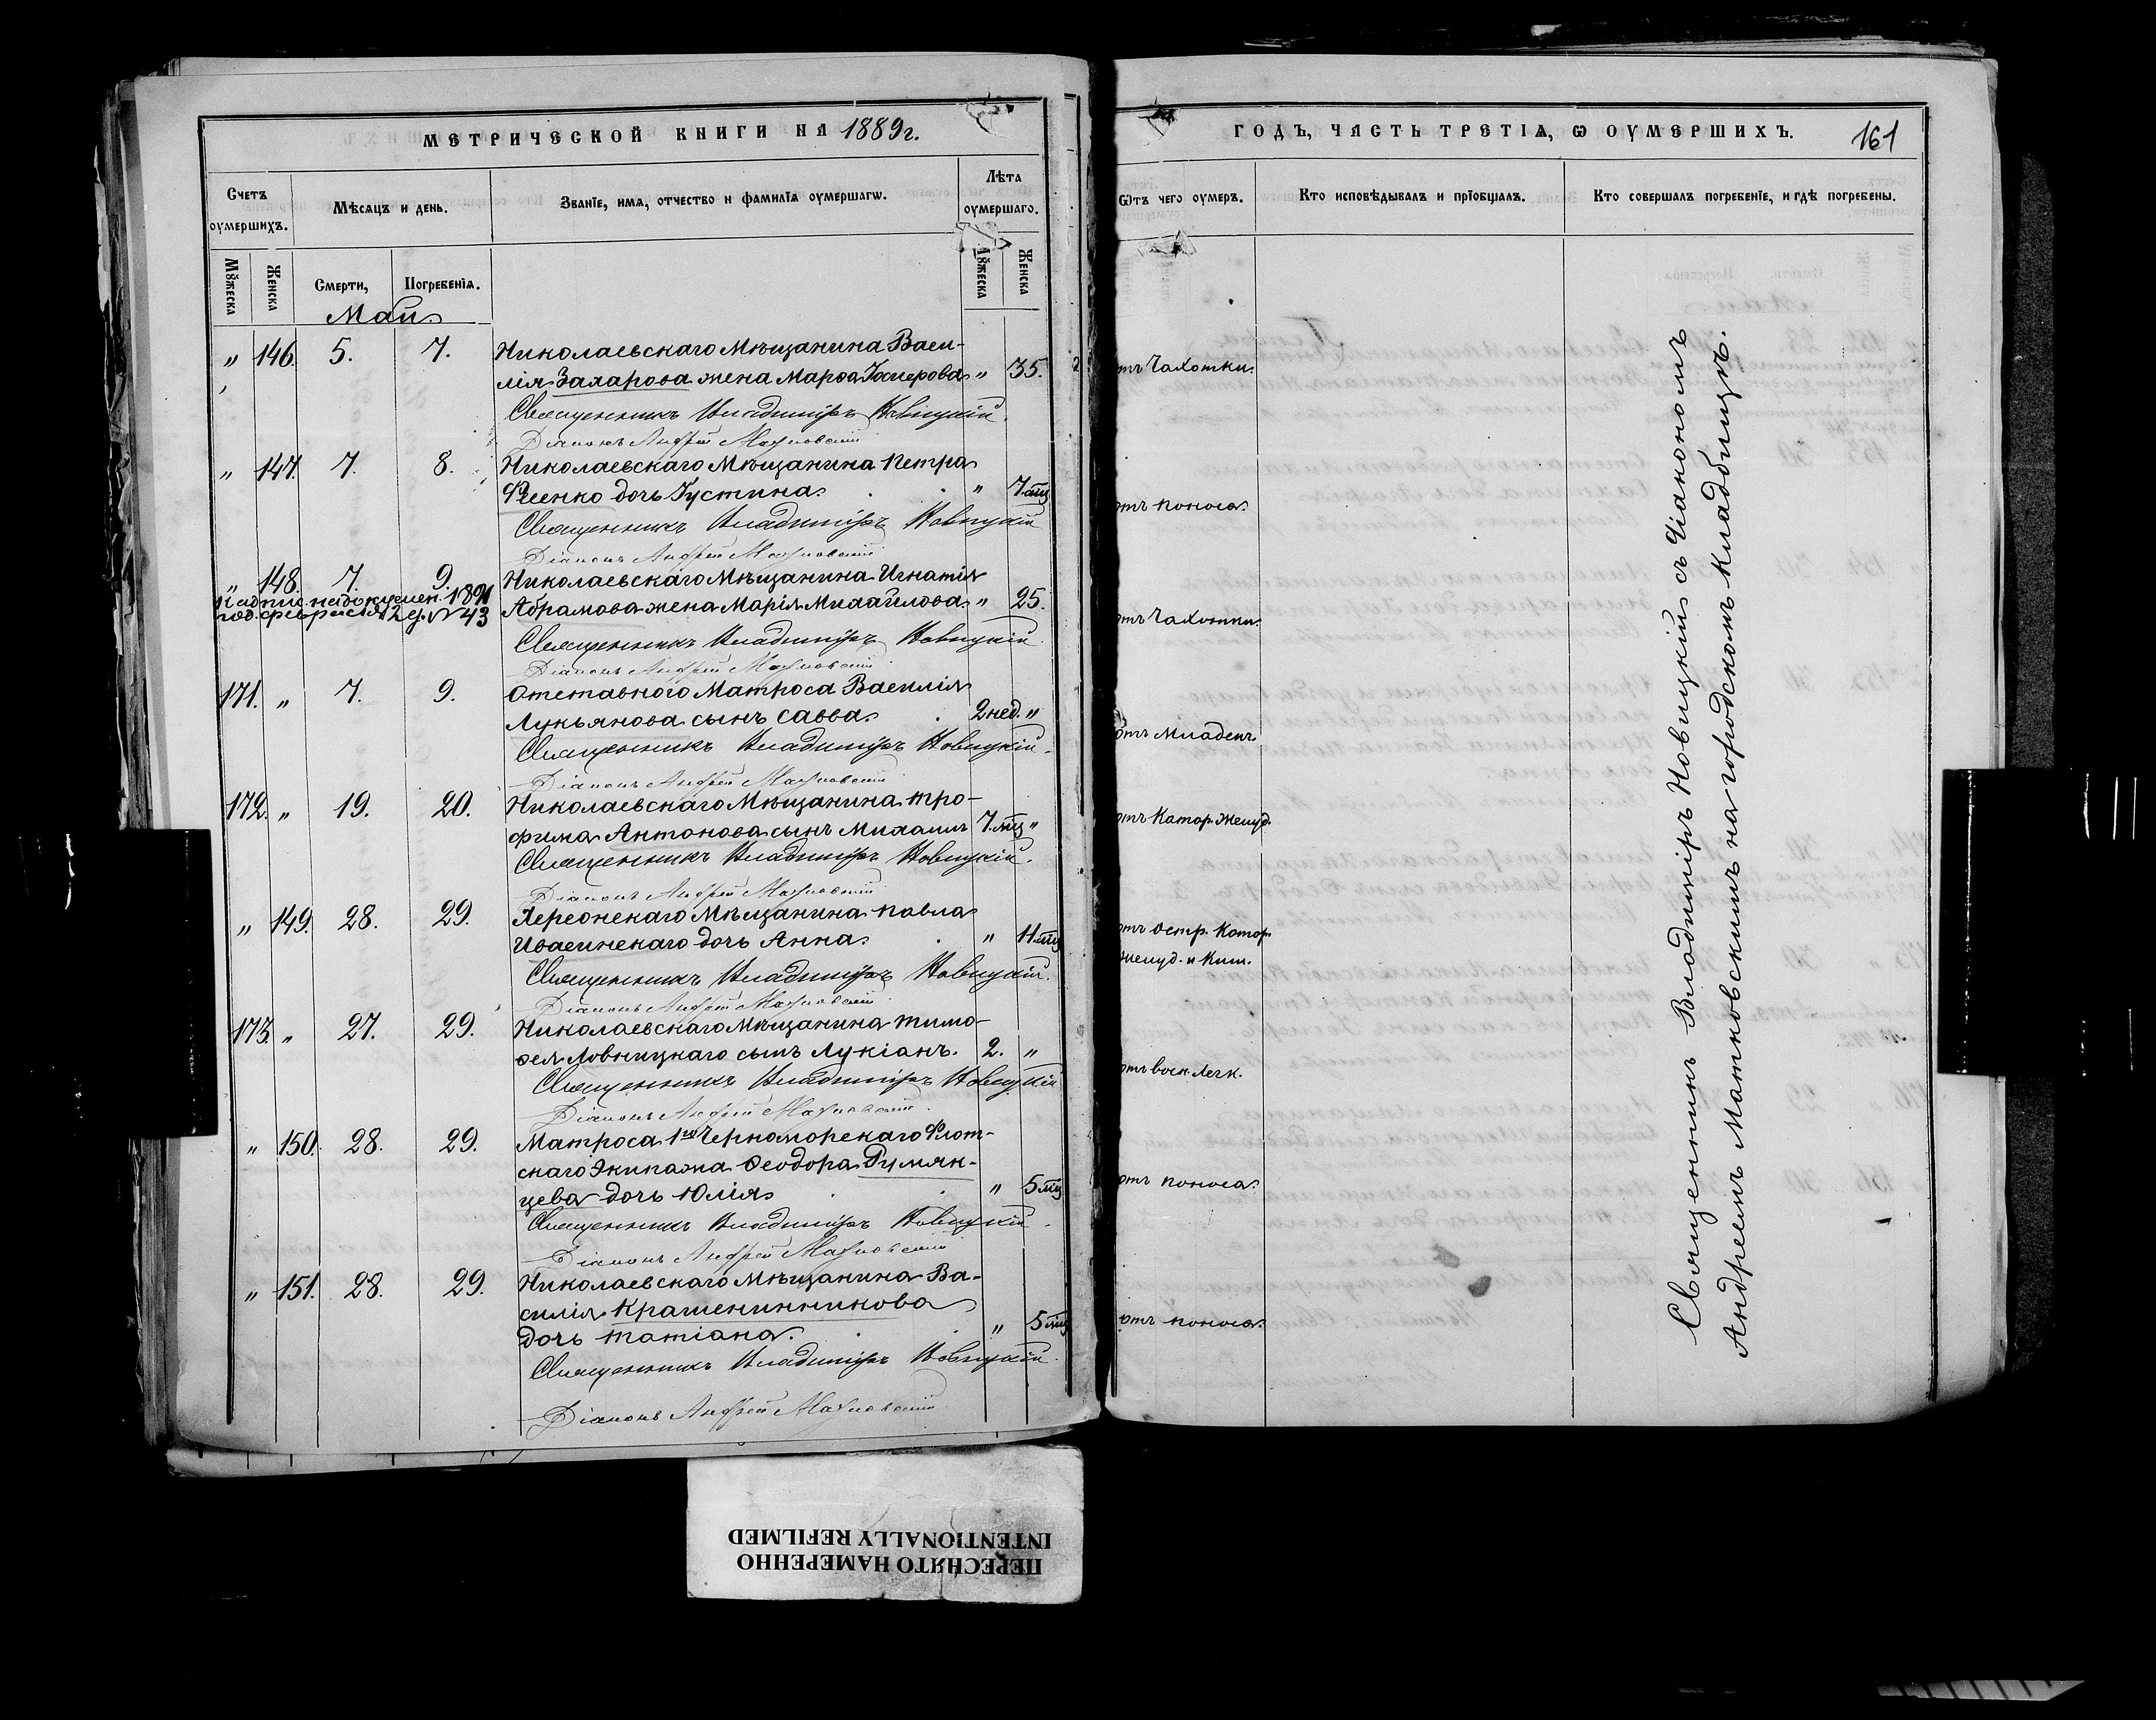 МЕТРИЧЕСКОЙ КНИГИ НА 1889 г.
Счетъ оумершихъ.
Мѣсяцъ и день.
Званіе, имя, отчество и фамилія оумершагѡ.
Лѣта оумершаго.
Мꙋжеска
Женска
Смерти,
Погребенія.
Мꙋжеска
Женска
Май
„ 146. 5. 7. Николаевскаго Мѣщанина Васи-
лія Захарова жена Марѳа „ 35.
Священникъ Владиміръ Новицкій.
Діаконъ Андрей Матковскій
„ 147. 7. 8. Николаевскаго Мѣщанина Петра
Фесенко дочь Іустина. „ 7 мц
Священникъ Владиміръ Новицкій
Діаконъ Андрей Матковскій
„ 148. 7. 9. Николаевскаго Мѣщанина Игнатія
Абрамова жена Марія Михайлова. „ 25.
год. февраля 12 д. № 43
Священникъ Владиміръ Новицкій
Діаконъ Андрей Матковскій
171. „ 7. 9. Отставного Матроса Василія
Лукьянова сынъ Савва. 2 нед. „
Священникъ Владиміръ Новицкій.
Діаконъ Андрей Матковскій
172. „ 19. 20. Николаевскаго Мѣщанина Тро-
фима Антонова сынъ Михаилъ 7. мц „
Священникъ Владиміръ Новицкій.
Діаконъ Андрей Матковскій
„ 149. 28. 29. Херсонскаго Мѣщанина Павла
Ивасинскаго дочь Анна. „ 11 мц
Священникъ Владиміръ Новицкій.
Діаконъ Андрей Матковскій
173. „ 27. 29. Николаевскаго Мѣщанина Тимо-
ѳея Ловницкаго сынъ Лукіанъ. 2. „
Священникъ Владиміръ Новицкій
Діаконъ Андрей Матковскій.
„ 150. 28. 29. Матроса 1го Черноморскаго Флот-
скаго Экипажа Ѳеодора Румян-
цева дочь Юлія. „ 5 мц
Священникъ Владиміръ Новицкій.
Діаконъ Андрей Матковскій
„ 151. 28. 29. Николаевскаго Мѣщанина Ва-
силія Крашенинникова
дочь Татіана. „ 5 мц
Священникъ Владиміръ Новицкій.
Діаконъ Андрей Матковскій
ГОДЪ, ЧАСТЬ ТРЕТІѦ, Ѡ ОУМЕРШИХЪ. 161
Ѿтъ чего оумеръ.
Кто исповѣдывалъ и пріобщалъ.
Кто совершалъ погребеніе, и гдѣ погребены.
отъ Чахотки.
отъ поноса.
отъ Чахотки.
отъ Младенч.
отъ Катар. желуд.
отъ остр. Катар.
желуд. и Киш.
отъ восп. легк.
отъ поноса.
отъ поноса.
Священникъ Владиміръ Новицкій съ Діакономъ
Андреемъ Матковскимъ на городскомъ кладбищѣ.
ПЕРЕСНЯТО НАМЕРЕННО
INTENTIONALLY REFILMED